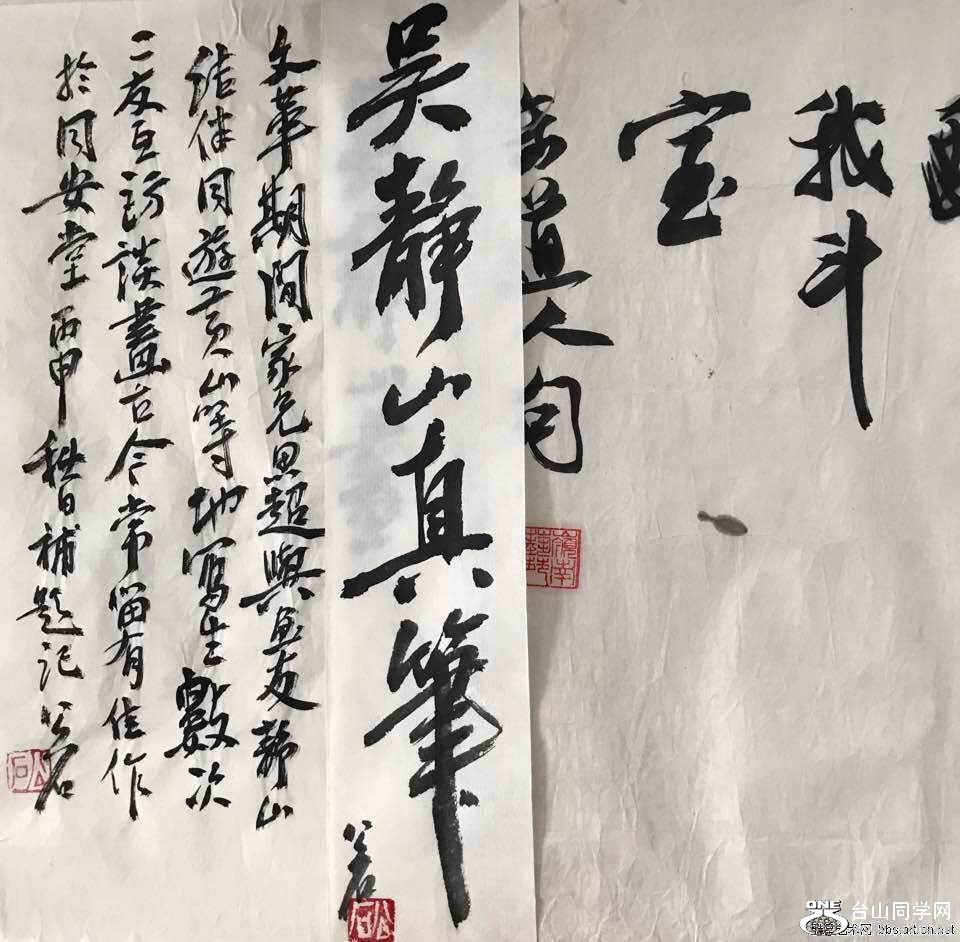 我斗
室
道人句
吴靜山真筆
公石
公石
文革期間家兄思超與画友靜山
結伴同遊黄山等地寫生數次
二友互訪談畫古今常留有佳作
於同安堂丙申秋日補題記公石
公石
嶺南
ONE
台山同学网
艺术网 bbs.artcn.net